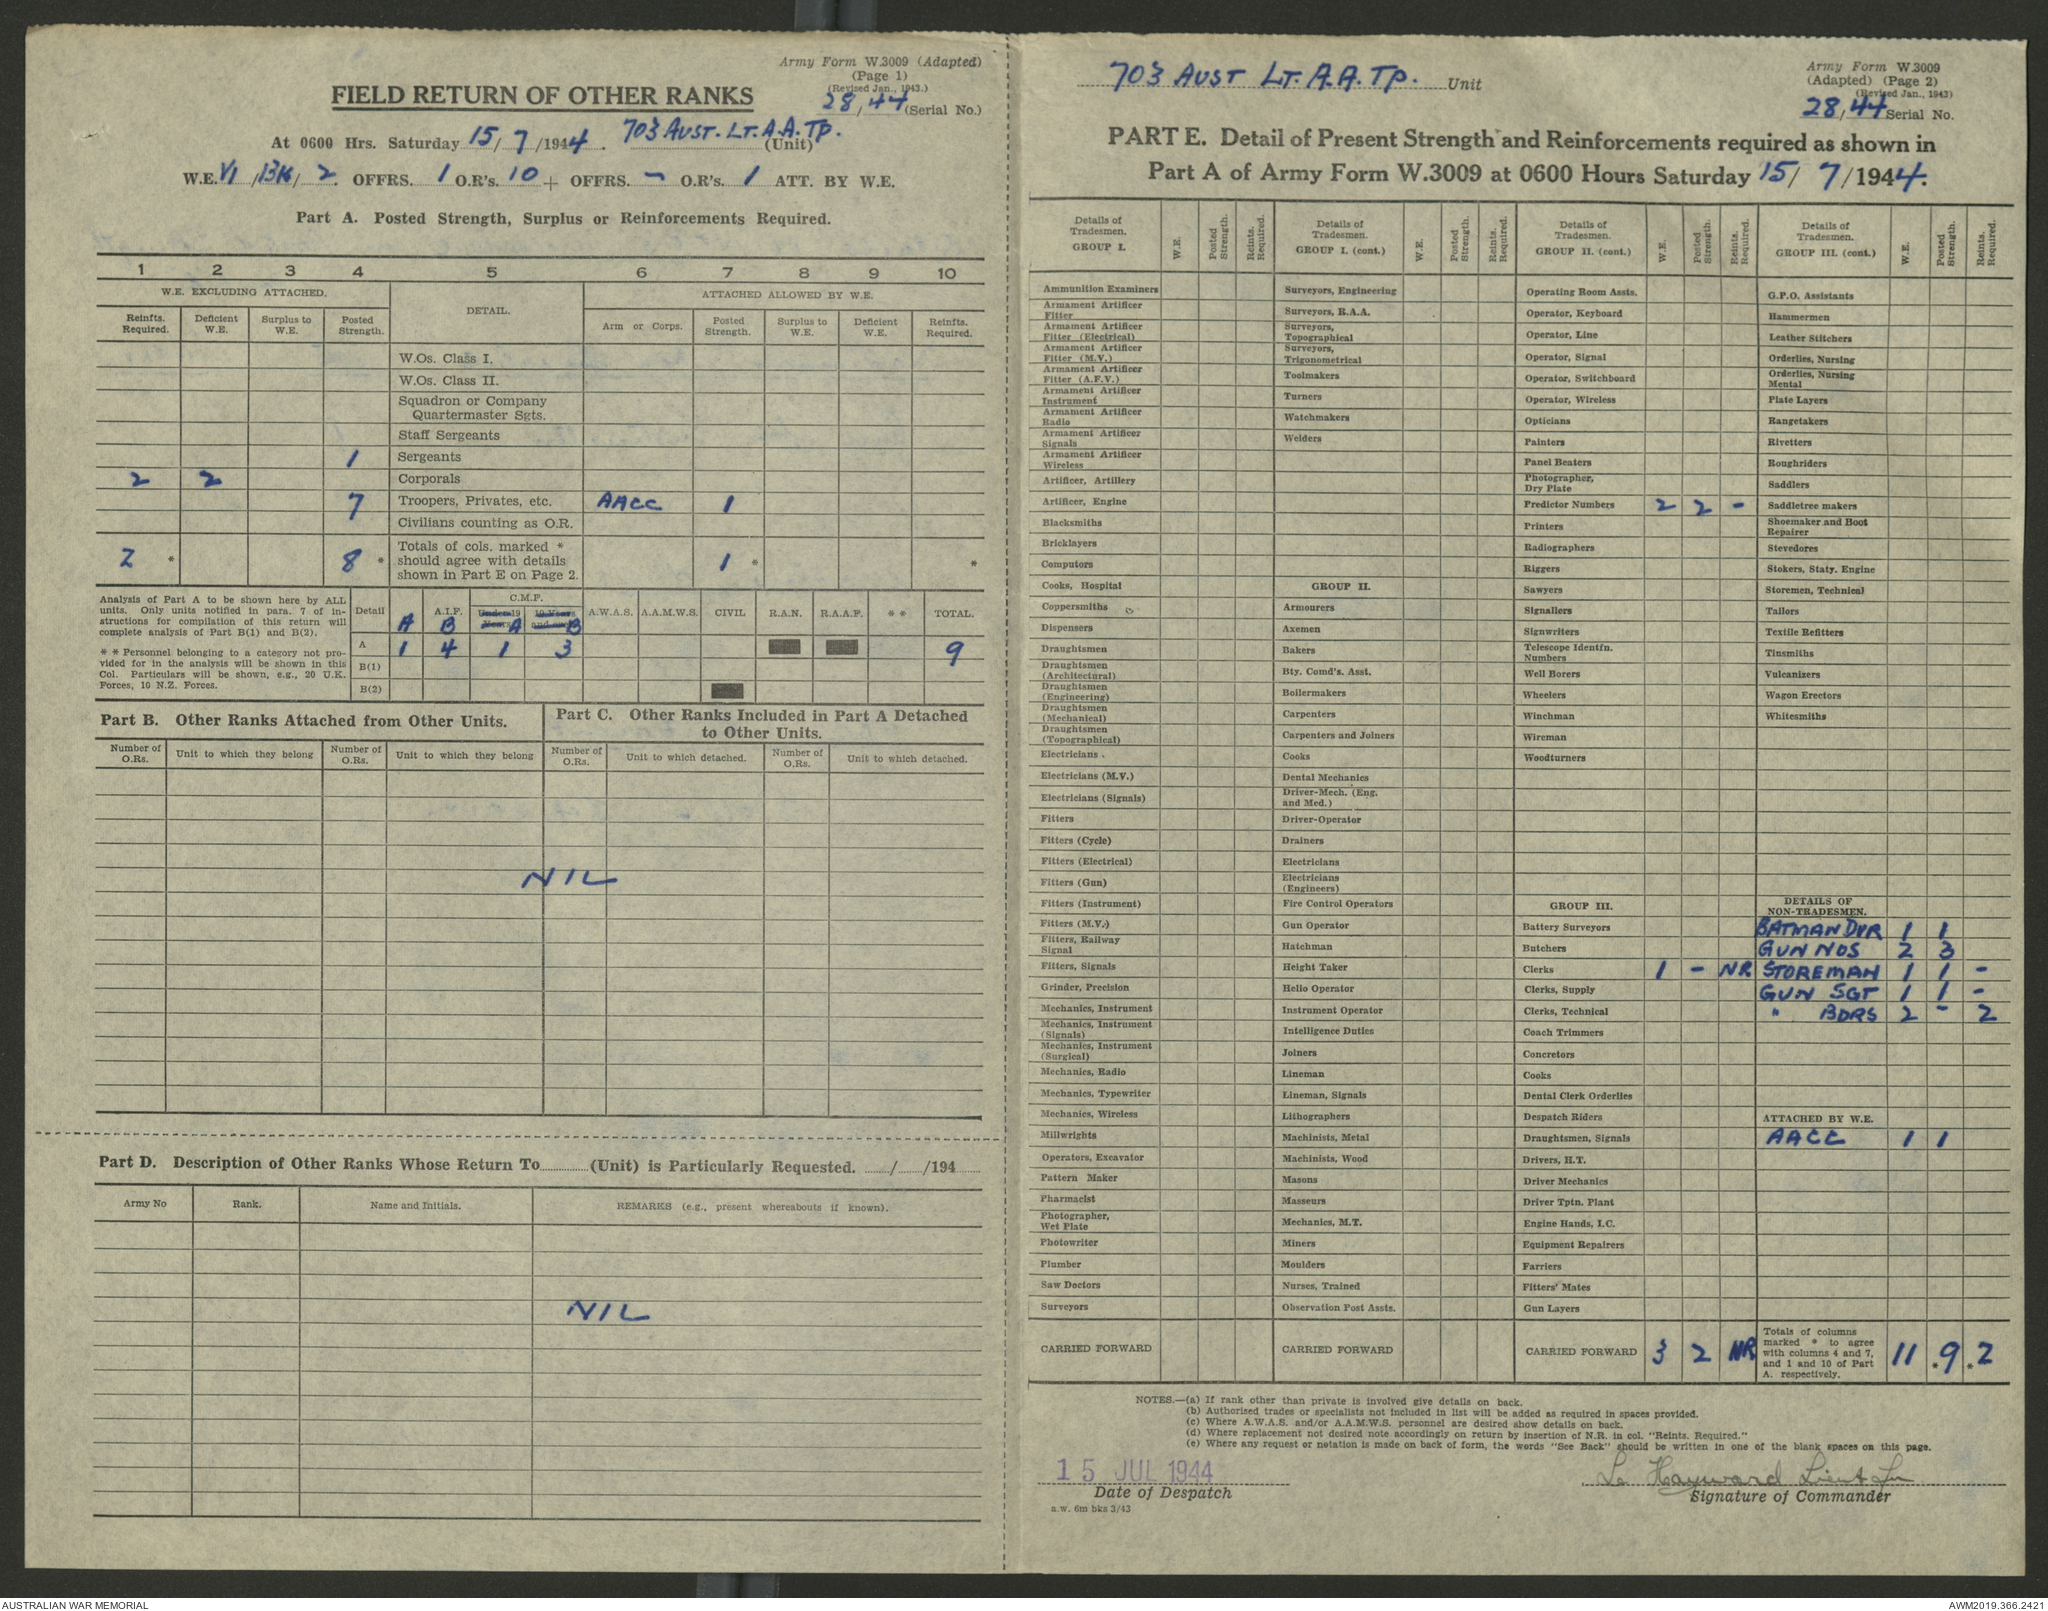 Army Form W.3009 (Adapted)
(Page 1)
(Revised Jan., 1943.)
28/44 (Serial No.)
FIELD RETURN OF OTHER RANKS
At 0600 Hrs. Saturday 15/7/1944. 703 AUST. LT. A.A. TP. (Unit)
W.E. VI/13K/2. OFFRS. 1 O.R's. 10 + OFFRS. - O.R's. 1 ATT. BY W.E.
Part A. Posted Strength, Surplus or Reinforcements Required.
1 2 3 4 5 6 7 8 9 10
W.E. EXCLUDING ATTACHED. DETAIL. ATTACHED ALLOWED BY W.E.
Reinfts. Required. Deficient W.E. Surplus to W.E. Posted Strength. Arm or Corps. Posted Strength. Surplus to W.E. Deficient W.E. Reinfts. Required.
W.Os. Class I.
W.Os. Class II.
Squadron or Company Quartermaster Sgts.
Staff Sergeants
1 Sergeants
2 2 Corporals
7 Troopers, Privates, etc. AACC 1
Civilians counting as O.R.
2 * 8 * Totals of cols. marked * should agree with details shown in Part E on Page 2. 1 * *
Analysis of Part A to be shown here by ALL
units. Only units notified in para. 7 of in-
structions for compilation of this return will
complete analysis of Part B(1) and B(2).
* * Personnel belonging to a category not pro-
vided for in the analysis will be shown in this
Col. Particulars will be shown, e.g., 20 U.K.
Forces, 10 N.Z. Forces.
Detail A.I.F. C.M.F. A.W.A.S. A.A.M.W.S. CIVIL R.A.N. R.A.A.F. * * TOTAL.
A B Under 19 Years A 19 Years and over B
A 1 4 1 3 9
B(1)
B(2)
Part B. Other Ranks Attached from Other Units.
Number of O.Rs. Unit to which they belong Number of O.Rs. Unit to which they belong
Part C. Other Ranks Included in Part A Detached
to Other Units.
Number of O.Rs. Unit to which detached. Number of O.Rs. Unit to which detached.
NIL
Part D. Description of Other Ranks Whose Return To (Unit) is Particularly Requested. / /194
Army No Rank. Name and Initials. REMARKS (e.g., present whereabouts if known).
NIL
703 AUST LT. A.A. TP. Unit
Army Form W.3009
(Adapted) (Page 2)
(Revised Jan., 1943)
28/44 Serial No.
PART E. Detail of Present Strength and Reinforcements required as shown in
Part A of Army Form W.3009 at 0600 Hours Saturday 15/7/1944.
Details of Tradesmen. GROUP I. W.E. Posted Strength. Reints. Required.
Ammunition Examiners
Armament Artificer Fitter
Armament Artificer Fitter (Electrical)
Armament Artificer Fitter (M.V.)
Armament Artificer Fitter (A.F.V.)
Armament Artificer Instrument
Armament Artificer Radio
Armament Artificer Signals
Armament Artificer Wireless
Artificer, Artillery
Artificer, Engine
Blacksmiths
Bricklayers
Computors
Cooks, Hospital
Coppersmiths
Dispensers
Draughtsmen
Draughtsmen (Architectural)
Draughtsmen (Engineering)
Draughtsmen (Mechanical)
Draughtsmen (Topographical)
Electricians
Electricians (M.V.)
Electricians (Signals)
Fitters
Fitters (Cycle)
Fitters (Electrical)
Fitters (Gun)
Fitters (Instrument)
Fitters (M.V.)
Fitters, Railway Signal
Fitters, Signals
Grinder, Precision
Mechanics, Instrument
Mechanics, Instrument (Signals)
Mechanics, Instrument (Surgical)
Mechanics, Radio
Mechanics, Typewriter
Mechanics, Wireless
Millwrights
Operators, Excavator
Pattern Maker
Pharmacist
Photographer, Wet Plate
Photowriter
Plumber
Saw Doctors
Surveyors
CARRIED FORWARD
Details of Tradesmen. GROUP I. (cont.) W.E. Posted Strength. Reints. Required.
Surveyors, Engineering
Surveyors, R.A.A.
Surveyors, Topographical
Surveyors, Trigonometrical
Toolmakers
Turners
Watchmakers
Welders
GROUP II.
Armourers
Axemen
Bakers
Bty. Comd's. Asst.
Boilermakers
Carpenters
Carpenters and Joiners
Cooks
Dental Mechanics
Driver-Mech. (Eng. and Med.)
Driver-Operator
Drainers
Electricians
Electricians (Engineers)
Fire Control Operators
Gun Operator
Hatchman
Height Taker
Helio Operator
Instrument Operator
Intelligence Duties
Joiners
Lineman
Lineman, Signals
Lithographers
Machinists, Metal
Machinists, Wood
Masons
Masseurs
Mechanics, M.T.
Miners
Moulders
Nurses, Trained
Observation Post Assts.
CARRIED FORWARD
Details of Tradesmen. GROUP II. (cont.) W.E. Posted Strength. Reints. Required.
Operating Room Assts.
Operator, Keyboard
Operator, Line
Operator, Signal
Operator, Switchboard
Operator, Wireless
Opticians
Painters
Panel Beaters
Photographer, Dry Plate
Predictor Numbers 2 2 -
Printers
Radiographers
Riggers
Sawyers
Signallers
Signwriters
Telescope Identfn. Numbers
Well Borers
Wheelers
Winchman
Wireman
Woodturners
GROUP III.
Battery Surveyors
Butchers
Clerks 1 - NR
Clerks, Supply
Clerks, Technical
Coach Trimmers
Concretors
Cooks
Dental Clerk Orderlies
Despatch Riders
Draughtsmen, Signals
Drivers, H.T.
Driver Mechanics
Driver Tptn. Plant
Engine Hands, I.C.
Equipment Repairers
Farriers
Fitters' Mates
Gun Layers
CARRIED FORWARD 3 2 NR
Details of Tradesmen. GROUP III. (cont.) W.E. Posted Strength. Reints. Required.
G.P.O. Assistants
Hammermen
Leather Stitchers
Orderlies, Nursing
Orderlies, Nursing Mental
Plate Layers
Rangetakers
Rivetters
Roughriders
Saddlers
Saddletree makers
Shoemaker and Boot Repairer
Stevedores
Stokers, Staty. Engine
Storemen, Technical
Tailors
Textile Refitters
Tinsmiths
Vulcanizers
Wagon Erectors
Whitesmiths
DETAILS OF NON-TRADESMEN.
BATMAN DVR 1 1
GUN NOS 2 3
STOREMAN 1 1 -
GUN SGT 1 1 -
" BDRS 2 - 2
ATTACHED BY W.E.
AACC 1 1
Totals of columns marked * to agree with columns 4 and 7, and 1 and 10 of Part A. respectively. 11 * 9 * 2
NOTES.—(a) If rank other than private is involved give details on back.
(b) Authorised trades or specialists not included in list will be added as required in spaces provided.
(c) Where A.W.A.S. and/or A.A.M.W.S. personnel are desired show details on back.
(d) Where replacement not desired note accordingly on return by insertion of N.R. in col. "Reints. Required."
(e) Where any request or notation is made on back of form, the words "See Back" should be written in one of the blank spaces on this page.
15 JUL 1944
Date of Despatch
Hayward Lieut
Signature of Commander
a.w. 6m bks 3/43
AUSTRALIAN WAR MEMORIAL
AWM2019.366.2421